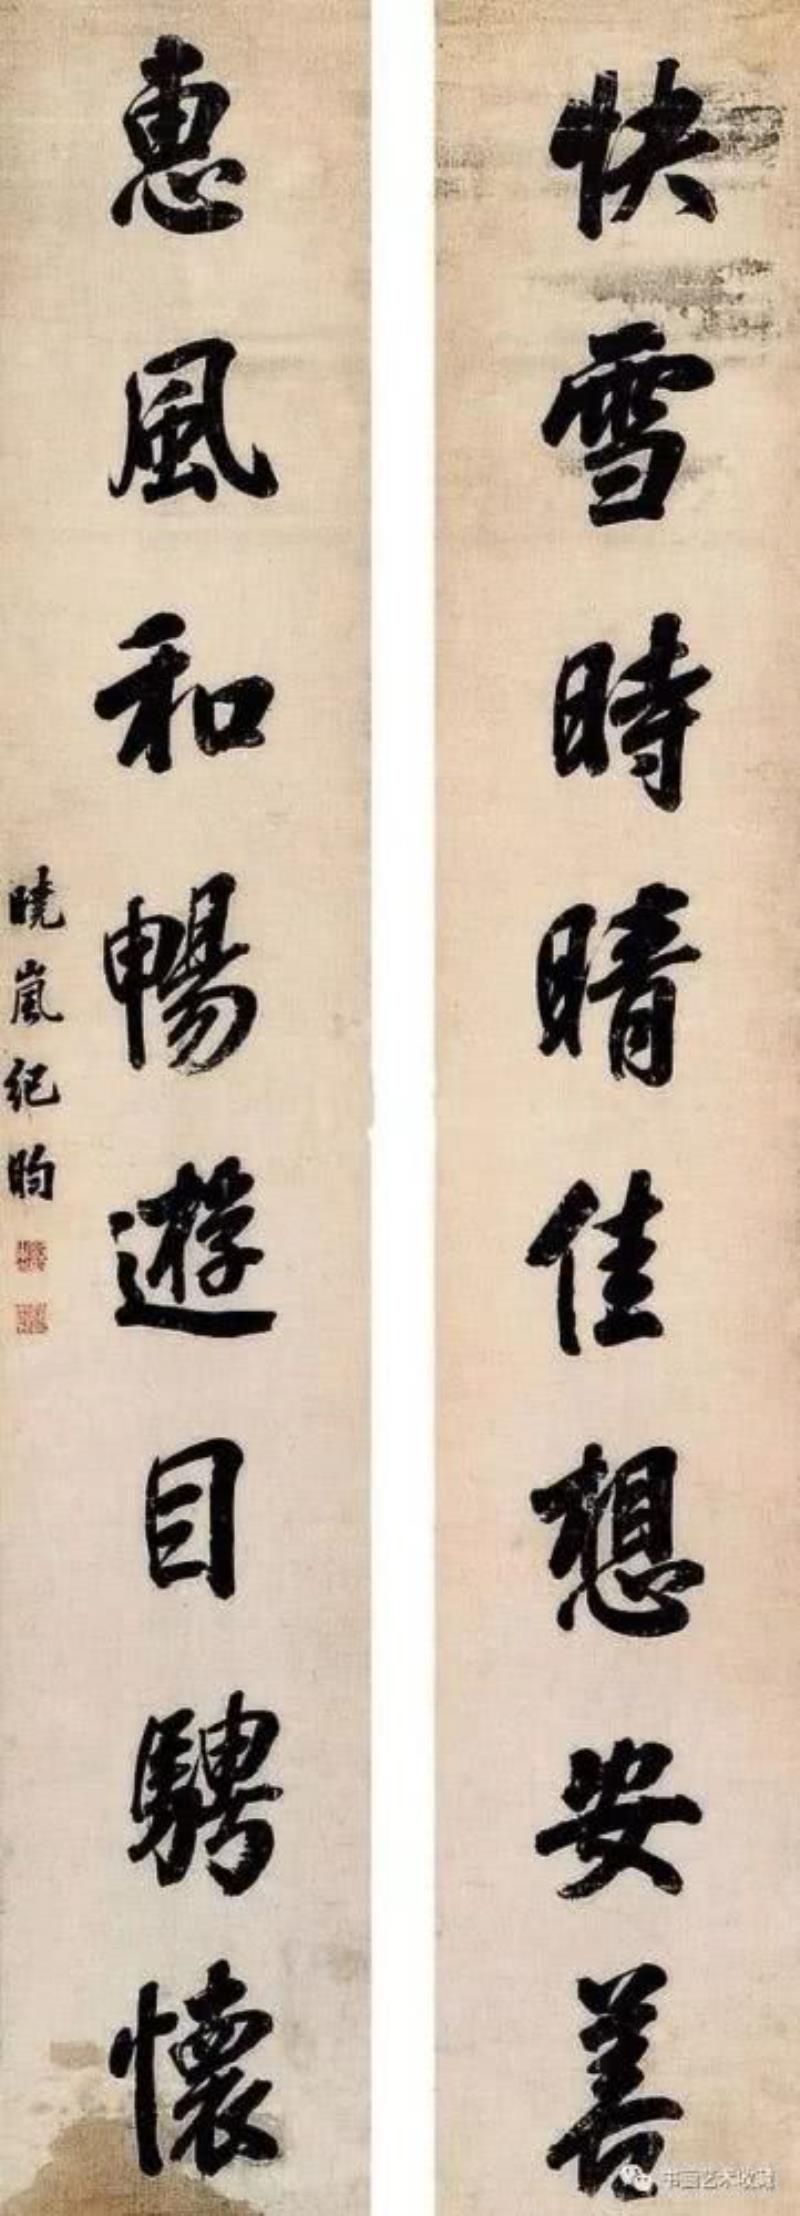 快雪時晴佳想安善
惠風和暢遊目騁懷
曉嵐紀昀
书画艺术收藏